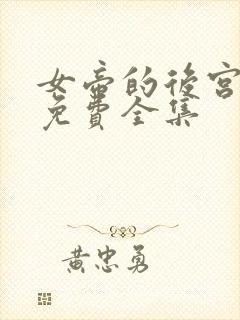 女帝的後宮
免費全集
黄忠勇